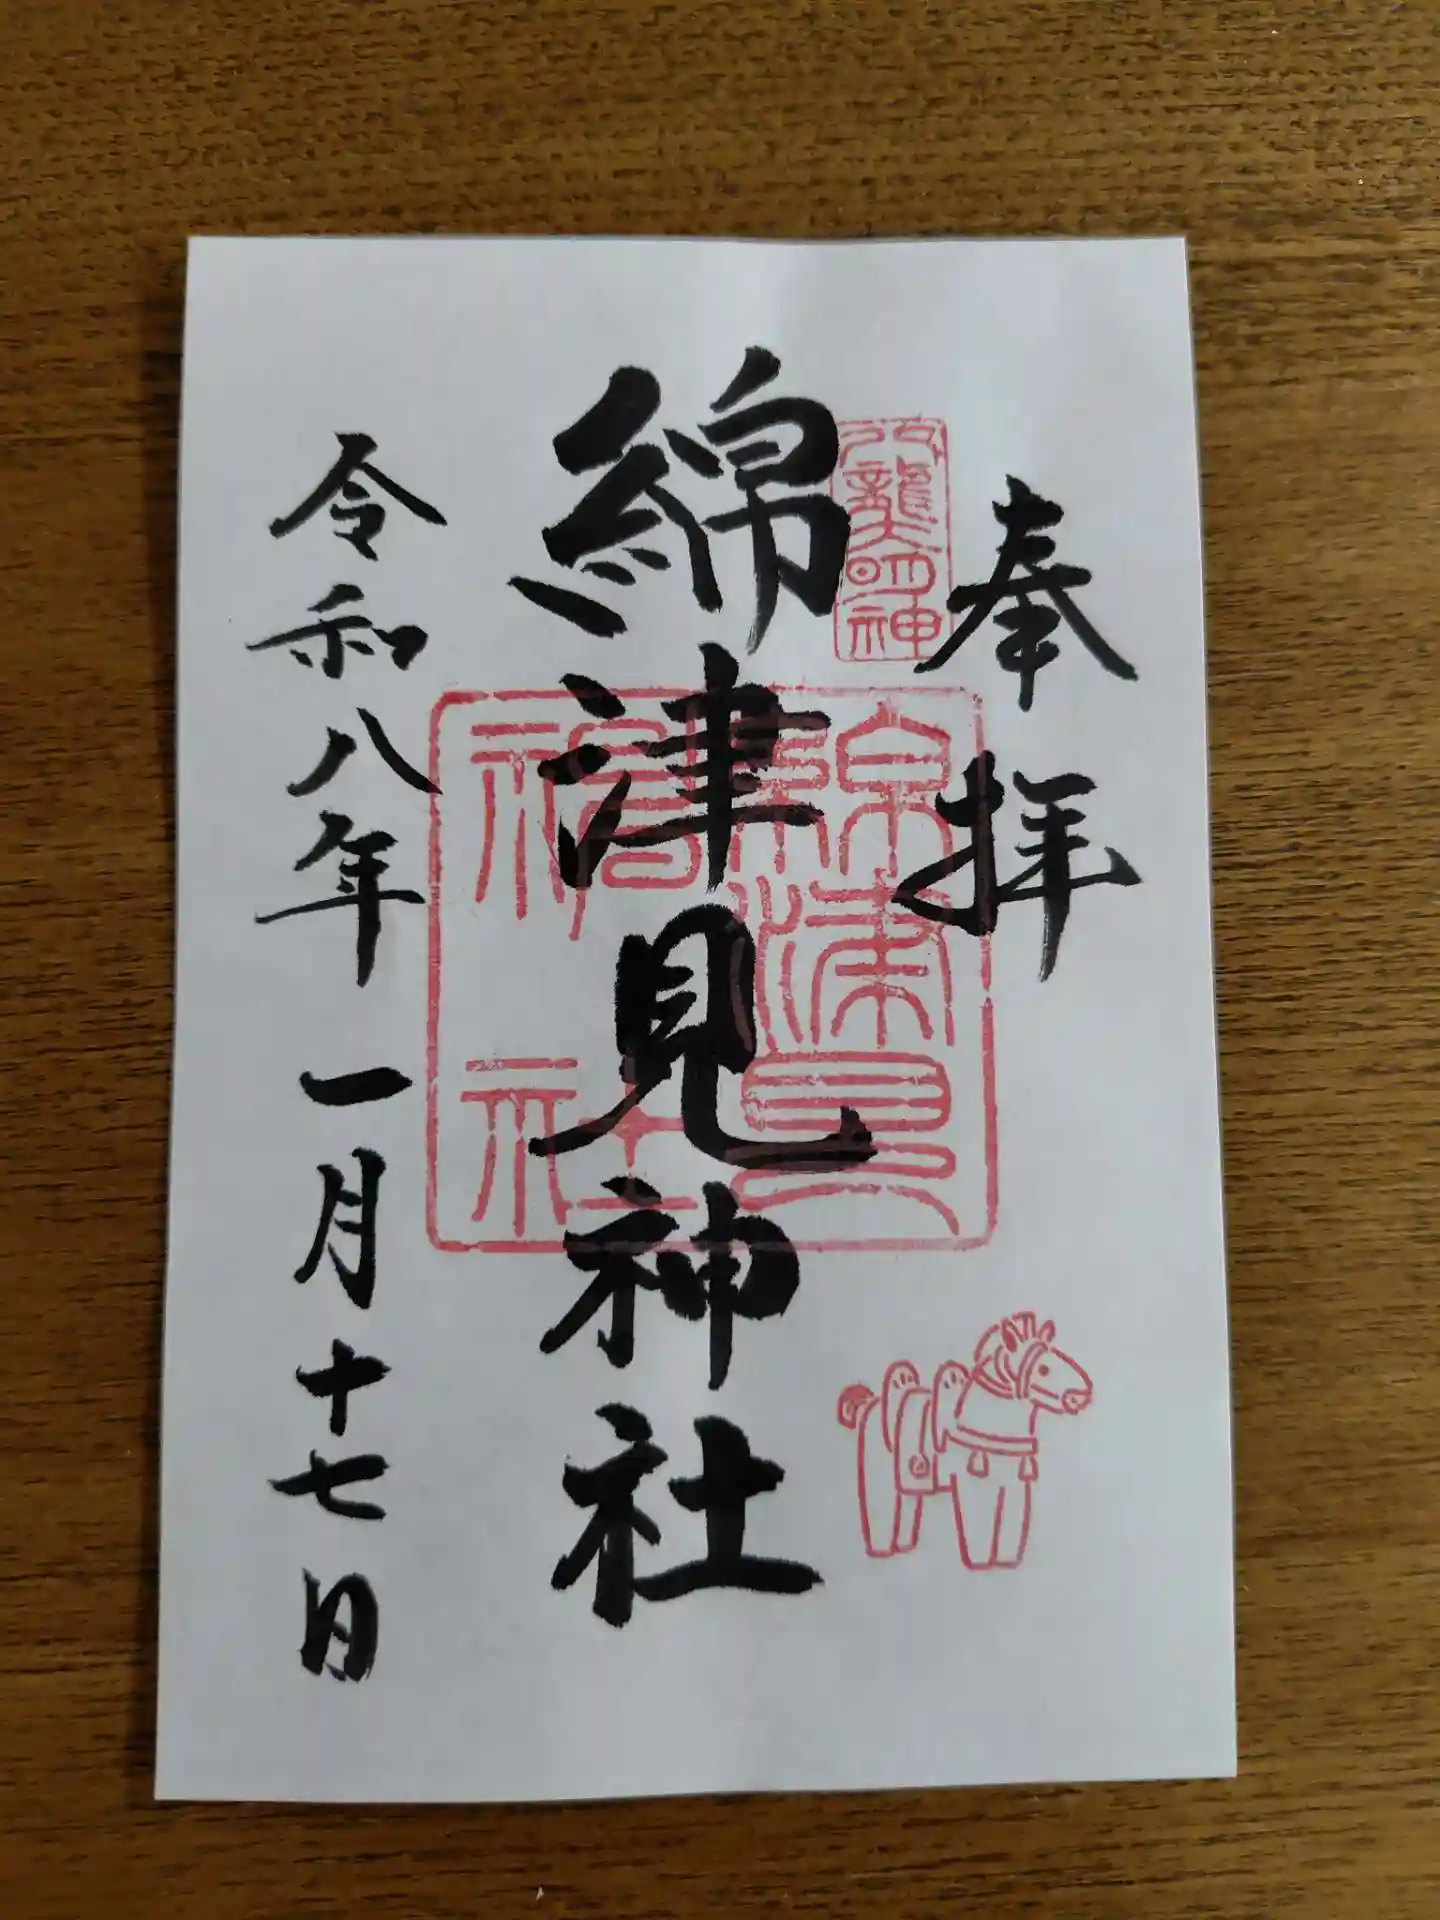 奉拝
八龍明神
綿津見神社
綿津見神社
令和八年 一月十七日